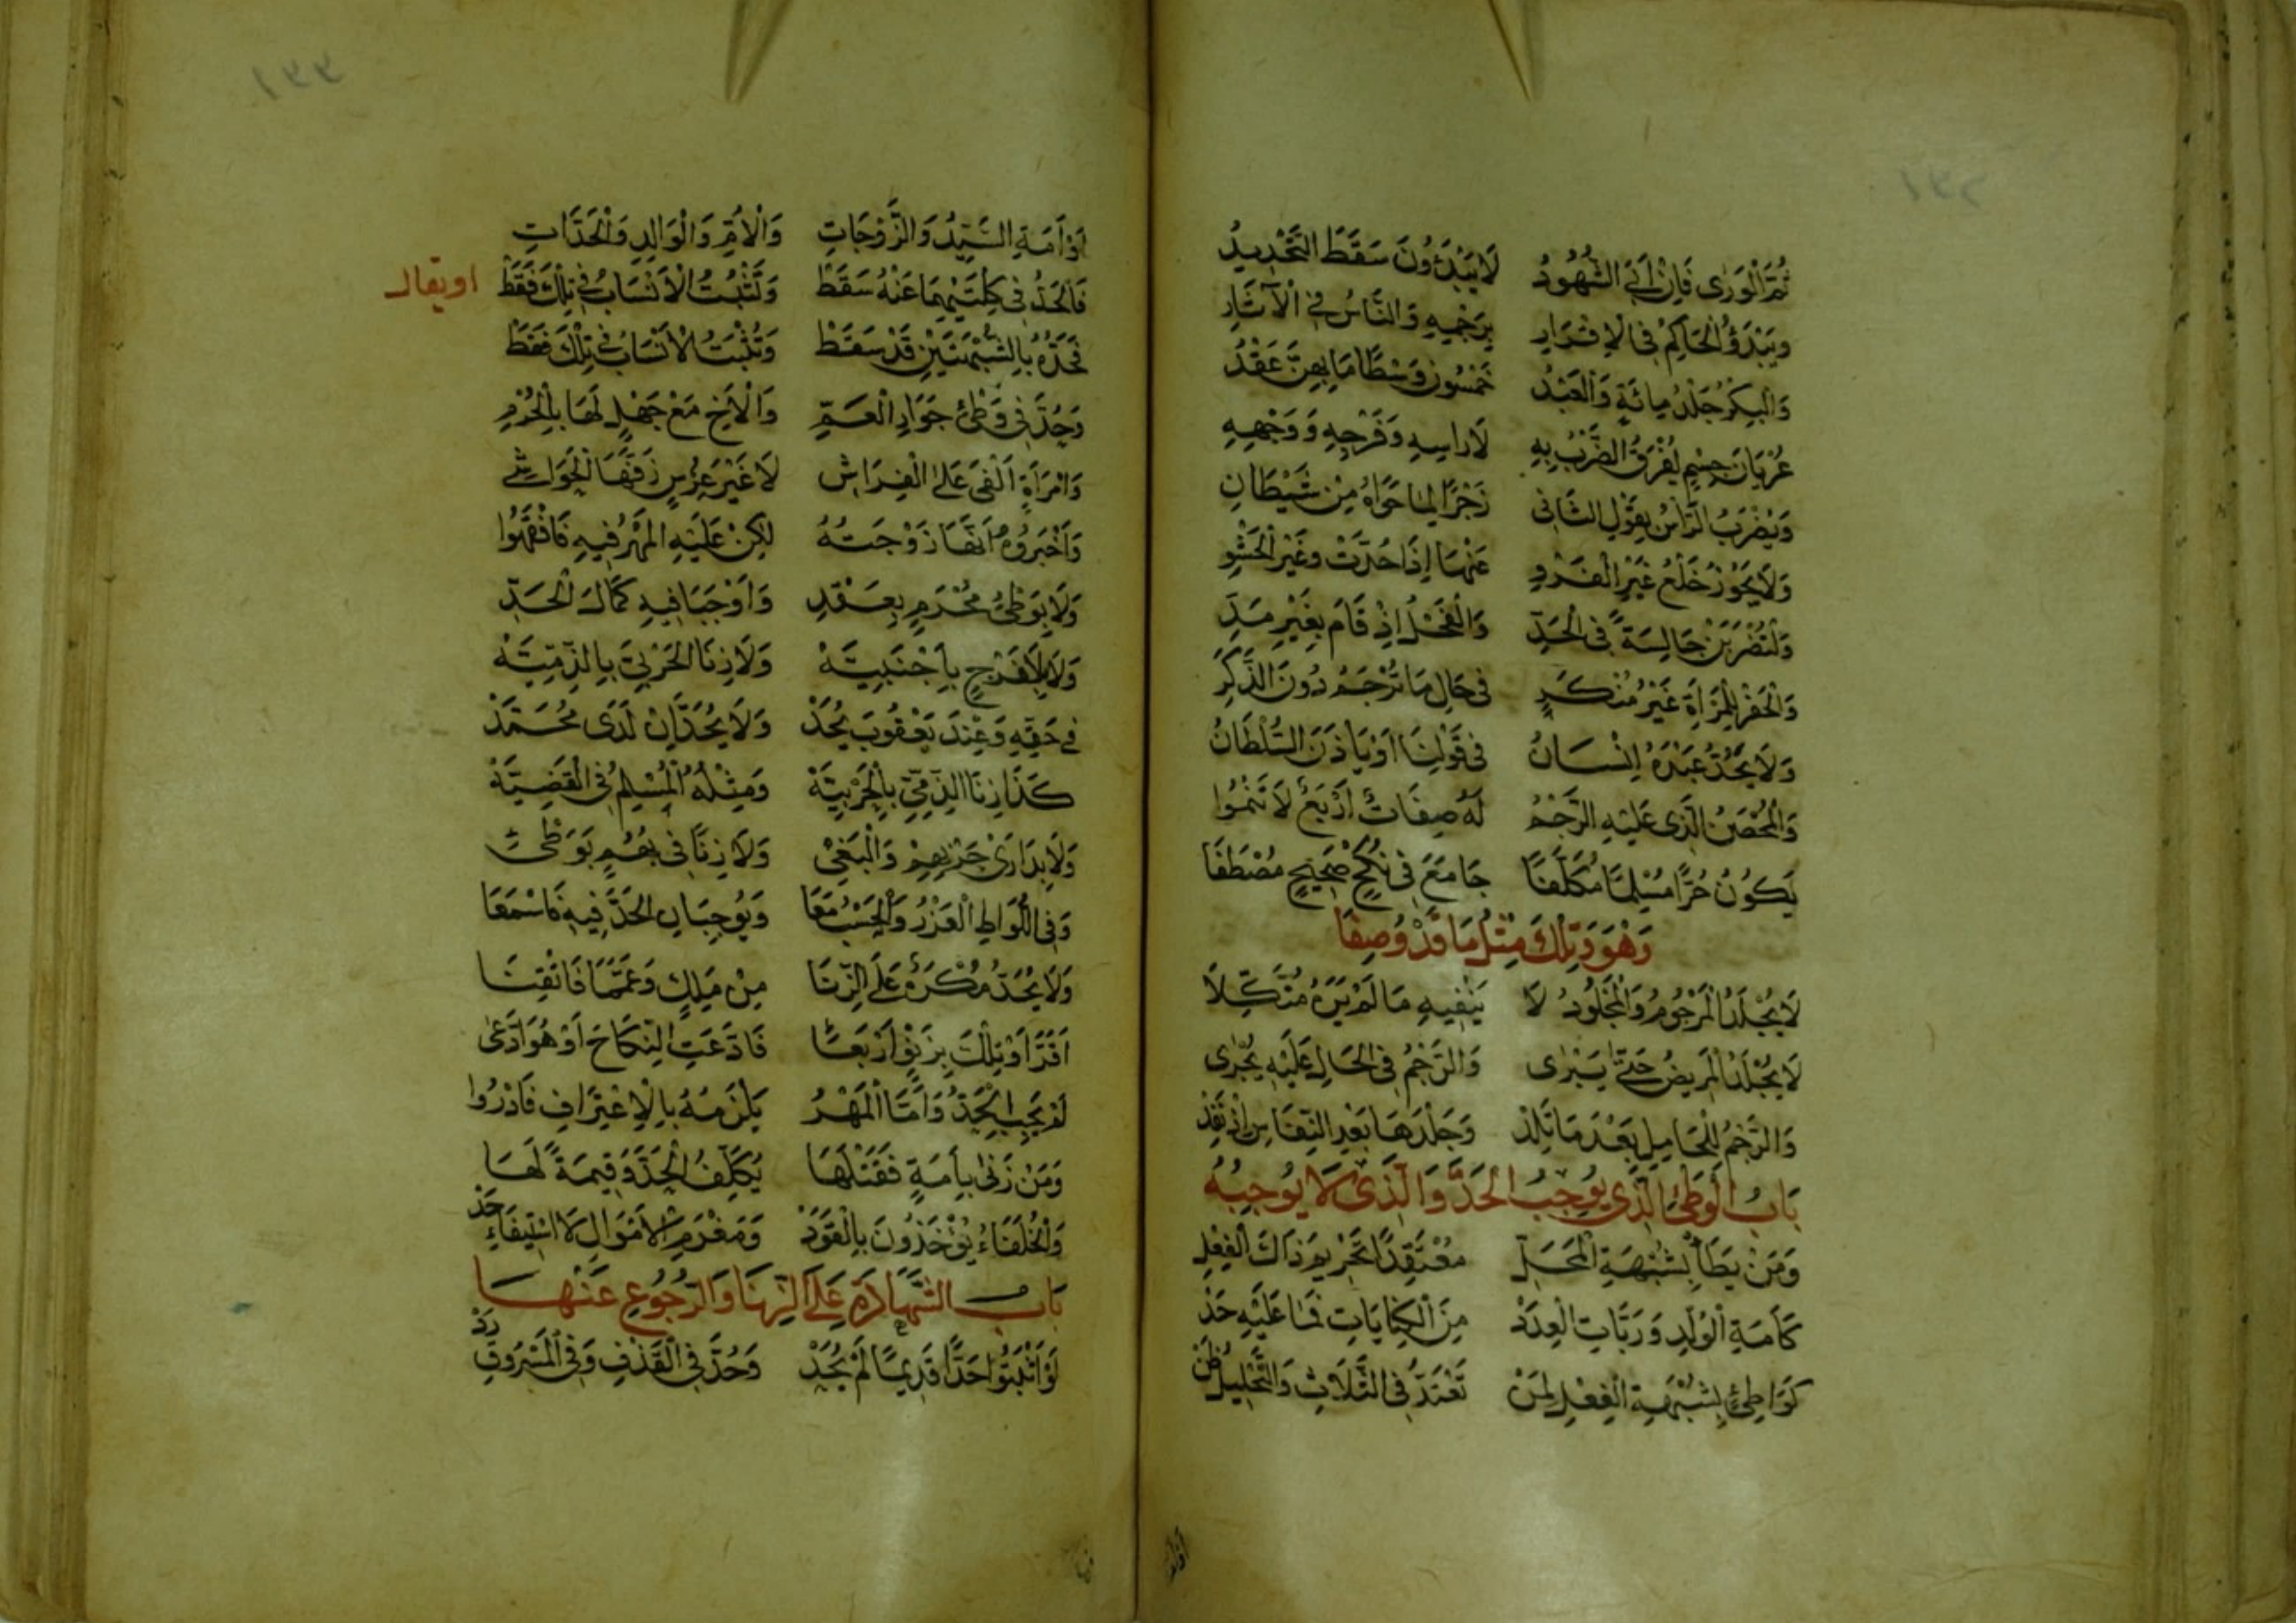 ثُمَّ الْوَرٰى فَاِنْ اَبَى الشُّهُودُ لَا يَبْدَؤُونَ سَقَطَ التَّحْدِيدُ
وَيَبْدَؤُ الْحَاكِمُ فِى الْاِقْرَارِ بِرَجْمِهِ وَالنَّاسُ فِى الْآثَارِ
وَالْبِكْرُ جَلْدُ مِائَةٍ وَالْعَبْدُ خَمْسُونَ وَسْطًا مَا بِهِنَّ عَقْدُ
عُرْيَانَ جِسْمٍ يُفْرَقُ الضَّرْبُ بِهِ لَا رَاسِهِ وَفَرْجِهِ وَوَجْهِهِ
وَيُضْرَبُ الرَّأسُ بِقَوْلِ الثَّانِى زَجْرًا لِمَا حَوَاهُ مِنْ شَيْطَانِ
وَلَا يَجُوزُ خَلْعُ غَيْرِ الْفَرْوِ عَنْهَا اِذَا حُدَّتْ وَغَيْرَ الْحَشْوِ
وَلْتُضْرَبَنْ جَالِسَةً فِى الْحَدِّ وَالْفَحْلُ اِذْ قَامَ بِغَيْرِ مَدِّ
وَالْحَفْرُ لِلْمَرْأَةِ غَيْرُ مُنْكَرِ فِى حَالِ مَا تُرْجَمُ دُونَ الذَّكَرِ
وَلَا يَحُدُّ عَبْدَهُ اِنْسَانُ فِى قَوْلِنَا اَوْ يَأذَنَ السُّلْطَانُ
وَالْمُحْصَنُ الَّذِى عَلَيْهِ الرَّجْمُ لَهُ صِفَاتٌ اَرْبَعٌ لَا تَنْمُوا
يَكُونُ حُرًّا مُسْلِمًا مُكَلَّفًا جَامَعَ فِى نُكْحٍ صَحِيحٍ مُصْطَفَا
وَهْوَ وَتِلْكَ مِثْلُ مَا قَدْ وُصِفَا
لَا يُجْلَدُ الْمَرْجُومُ وَالْمَجْلُودُ لَا يَنْفِيهِ مَا لَمْ يَرَهُ مُنَكِّلَا
لَا يُجْلَدُ الْمَرِيضُ حَتَّى يَبْرٰى وَالرَّجْمُ فِى الْحَالِ عَلَيْهِ يُجْرٰى
وَالرَّجْمُ لِلْحَامِلِ بَعْدَ مَا تَلِدْ وَجَلْدُهَا بَعْدَ النِّفَاسِ اِذْ نَفِذْ
بَابُ الْوَطْئِ الَّذِى يُوجِبُ الْحَدَّ وَالَّذِى لَا يُوجِبُهُ
وَمَنْ يَطَأ بِشُبْهَةِ الْمَحَلِّ مُعْتَقِدًا تَحْرِيمَ ذَاكَ الْفِعْلِ
كَاَمَةِ الْوُلْدِ وَرَبَّاتِ الْعِدَدْ مِنَ الْكِنَايَاتِ فَمَا عَلَيْهِ حَدْ
كَوَاطِئٍ بِشُبْهَةِ الْفِعْلِ لِمَنْ تَعْتَدُّ فِى الثَّلَاثِ وَالتَّحْلِيلَ ظَنْ
اَوْ اَمَةِ السَّيِّدِ وَالزَّوْجَاتِ وَالْاُمِّ وَالْوَالِدِ وَالْجَدَّاتِ
فَالْحَدُّ فِى كِلْتَيْهِمَا عَنْهُ سَقَطْ وَتَثْبُتُ الْاَنْسَابُ فِى تِلْكَ فَقَطْ
او يقال
فَحَدُّهُ بِالشُّبْهَتَيْنِ قَدْ سَقَطْ وَتَثْبُتُ الْاَنْسَابُ فِى تِلْكَ فَقَطْ
وَحُدَّ فِى وَطْئِ جَوَارِ الْعَمِّ وَالْاَخِ مَعْ جَهْلٍ لَهَا بِالْحُرْمِ
وَامْرَاَةٍ اَلْفَى عَلَى الْفِرَاشِ لَا غَيْرَ عِرْسٍ زَفَّهَا الْحَوَاشِى
وَاَخْبَرُوهُ اَنَّهَا زَوْجَتُهُ لٰكِنْ عَلَيْهِ الْمَهْرُ فِيهِ فَافْقَهُوا
وَلَا بِوَطْئِ مَحْرَمٍ بِعَقْدِ وَاَوْجَبَا فِيهِ كَمَالَ الْحَدِّ
وَلَا بِلَا فَرْجٍ بِاَجْنَبِيَّهْ وَلَا زِنَا الْحَرْبِىِّ بِالذِّمِّيَّهْ
فِى حَقِّهِ وَعِنْدَ يَعْقُوبَ يُحَدْ وَلَا يُحَدَّانِ لَدَى مُحَمَّدْ
كَذَا زِنَا الذِّمِّىِّ بِالْحَرْبِيَّهْ وَمِثْلُهُ الْمُسْلِمُ فِى الْقَضِيَّهْ
وَلَا بِدَارَىْ حَرْبِهِمْ وَالْبَغْىِ وَلَا زِنًا فِى بُهُمٍ بِوَطْىِ
وَفِى اللِّوَاطِ الْعَزْرُ وَالْحَبْسُ مَعَا وَيُوجِبَانِ الْحَدَّ فِيهِ فَاسْمَعَا
وَلَا يُحَدُّ مُكْرَهٌ عَلَى الزِّنَا مِنْ مَلِكٍ وَعَمَّمَا فَاَتْقِنَا
اَقَرَّ اَوْ تِلْكَ بِزَنْىٍ اَرْبَعَا فَادَّعَتِ النِّكَاحَ اَوْ هُوَ ادَّعَى
لَمْ يَجِبِ الْحَدُّ وَاَمَّا الْمَهْرُ يَلْزَمُهُ بِالْاِعْتِرَافِ فَادْرُوا
وَمَنْ زَنٰى بِاَمَةٍ فَقَتْلَهَا يُكَلَّفُ الْحَدَّ وَقِيمَةً لَهَا
وَالْخُلَفَاءُ يُؤْخَذُونَ بِالْقَوَدْ وَمَغْرَمِ الْاَمْوَالِ لَا اسْتِيفَاءِ حَدْ
بَابُ الشَّهَادَةِ عَلَى الزِّنَا وَالرُّجُوعِ عَنْهَا
لَوْ اَثْبَتُوا حَدًّا قَدِيمًا لَمْ يُحَدْ وَحُدَّ فِى الْقَذْفِ وَفِى الْمَسْرُوقِ رَدْ